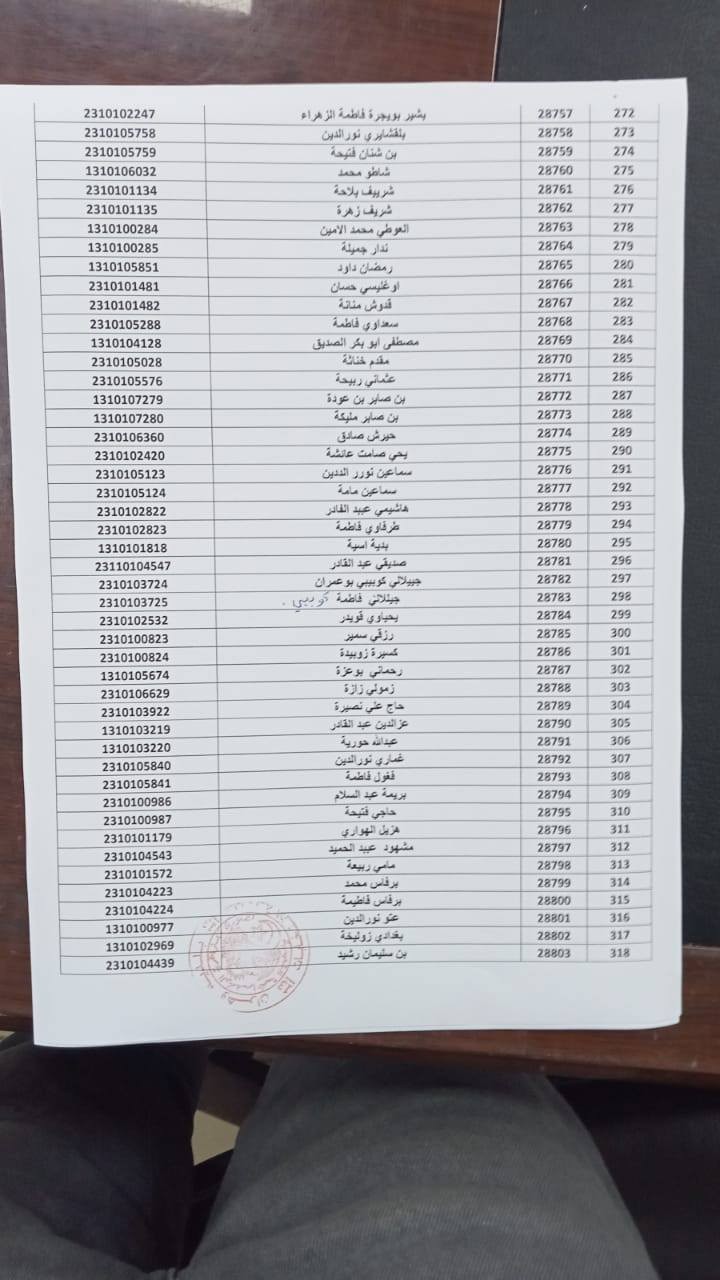 272 28757 بشير بويجرة فاطمة الزهراء 2310102247
273 28758 بلقشايري نورالدين 2310105758
274 28759 بن شنان فتيحة 2310105759
275 28760 شاطو محمد 1310106032
276 28761 شرييف بلاحة 2310101134
277 28762 شريف زهرة 2310101135
278 28763 العوطي محمد الامين 1310100284
279 28764 ندار جميلة 1310100285
280 28765 رمضان داود 1310105851
281 28766 اوغليسي حسان 2310101481
282 28767 قدوش منانة 2310101482
283 28768 سعداوي فاطمة 2310105288
284 28769 مصطفى ابو بكر الصديق 1310104128
285 28770 مقدم خناثة 2310105028
286 28771 عثماني ربيحة 2310105576
287 28772 بن صابر بن عودة 1310107279
288 28773 بن صابر مليكة 1310107280
289 28774 حيرش صادق 2310106360
290 28775 يحي صامت عائشة 2310102420
291 28776 سماعين نورر الددين 2310105123
292 28777 سماعين مامة 2310105124
293 28778 هاشيمي عبيد القادر 2310102822
294 28779 طرفاوي فاطمة 2310102823
295 28780 بدية اسية 1310101818
296 28781 صديقي عبد القادر 23110104547
297 28782 جييلالي كوبيبي بوعمران 2310103724
298 28783 جيلالي فاطمة كوبيبي 2310103725
299 28784 يحياوي قويدر 2310102532
300 28785 رزقي سمير 2310100823
301 28786 كسيرة زوبيدة 2310100824
302 28787 رحماني بوعزة 1310105674
303 28788 زمولي زازة 2310106629
304 28789 حاج علي نصيرة 2310103922
305 28790 عزالدين عبد القادر 1310103219
306 28791 عبدالله حورية 1310103220
307 28792 غماري نورالدين 2310105840
308 28793 فغول فاطمة 2310105841
309 28794 بريمة عبد السلام 2310100986
310 28795 حاجي فتيحة 2310100987
311 28796 هزيل الهواري 2310101179
312 28797 مشهود عبيد الحميد 2310104543
313 28798 مامي ربيعة 2310101572
314 28799 برفاس محمد 2310104223
315 28800 برفاس فاطيمة 2310104224
316 28801 عتو نورالدين 1310100977
317 28802 بغدادي زوليخة 1310102969
318 28803 بن سليمان رشيد 2310104439